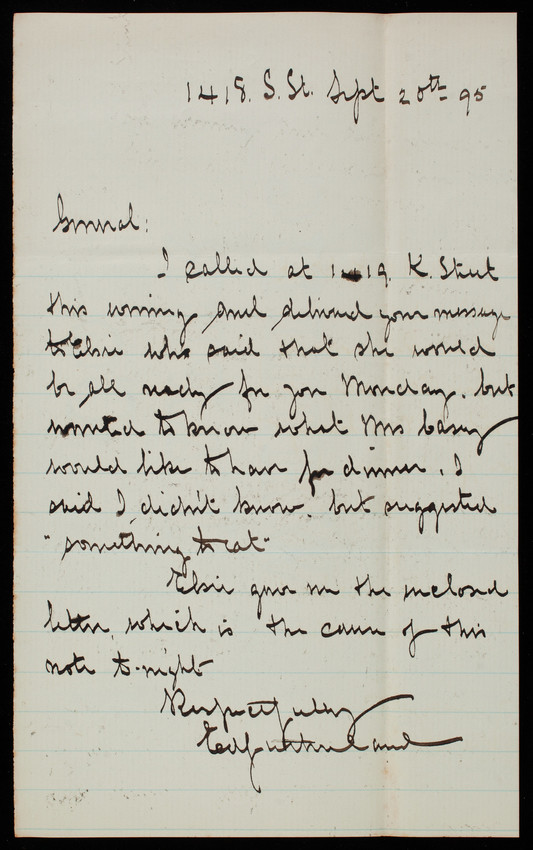 1418. S. St. Sept 20th 95
General:
I called at 1419. K. Street
this morning and delivered your message
to Elsie who said that she would
be all ready for you Monday. but
wanted to know what Mrs Casey
would like to have for dinner. I
said I didn't know. but suggested
"something to eat"
Elsie gave me the inclosed
letter, which is the cause of this
note to-night
Respectfully